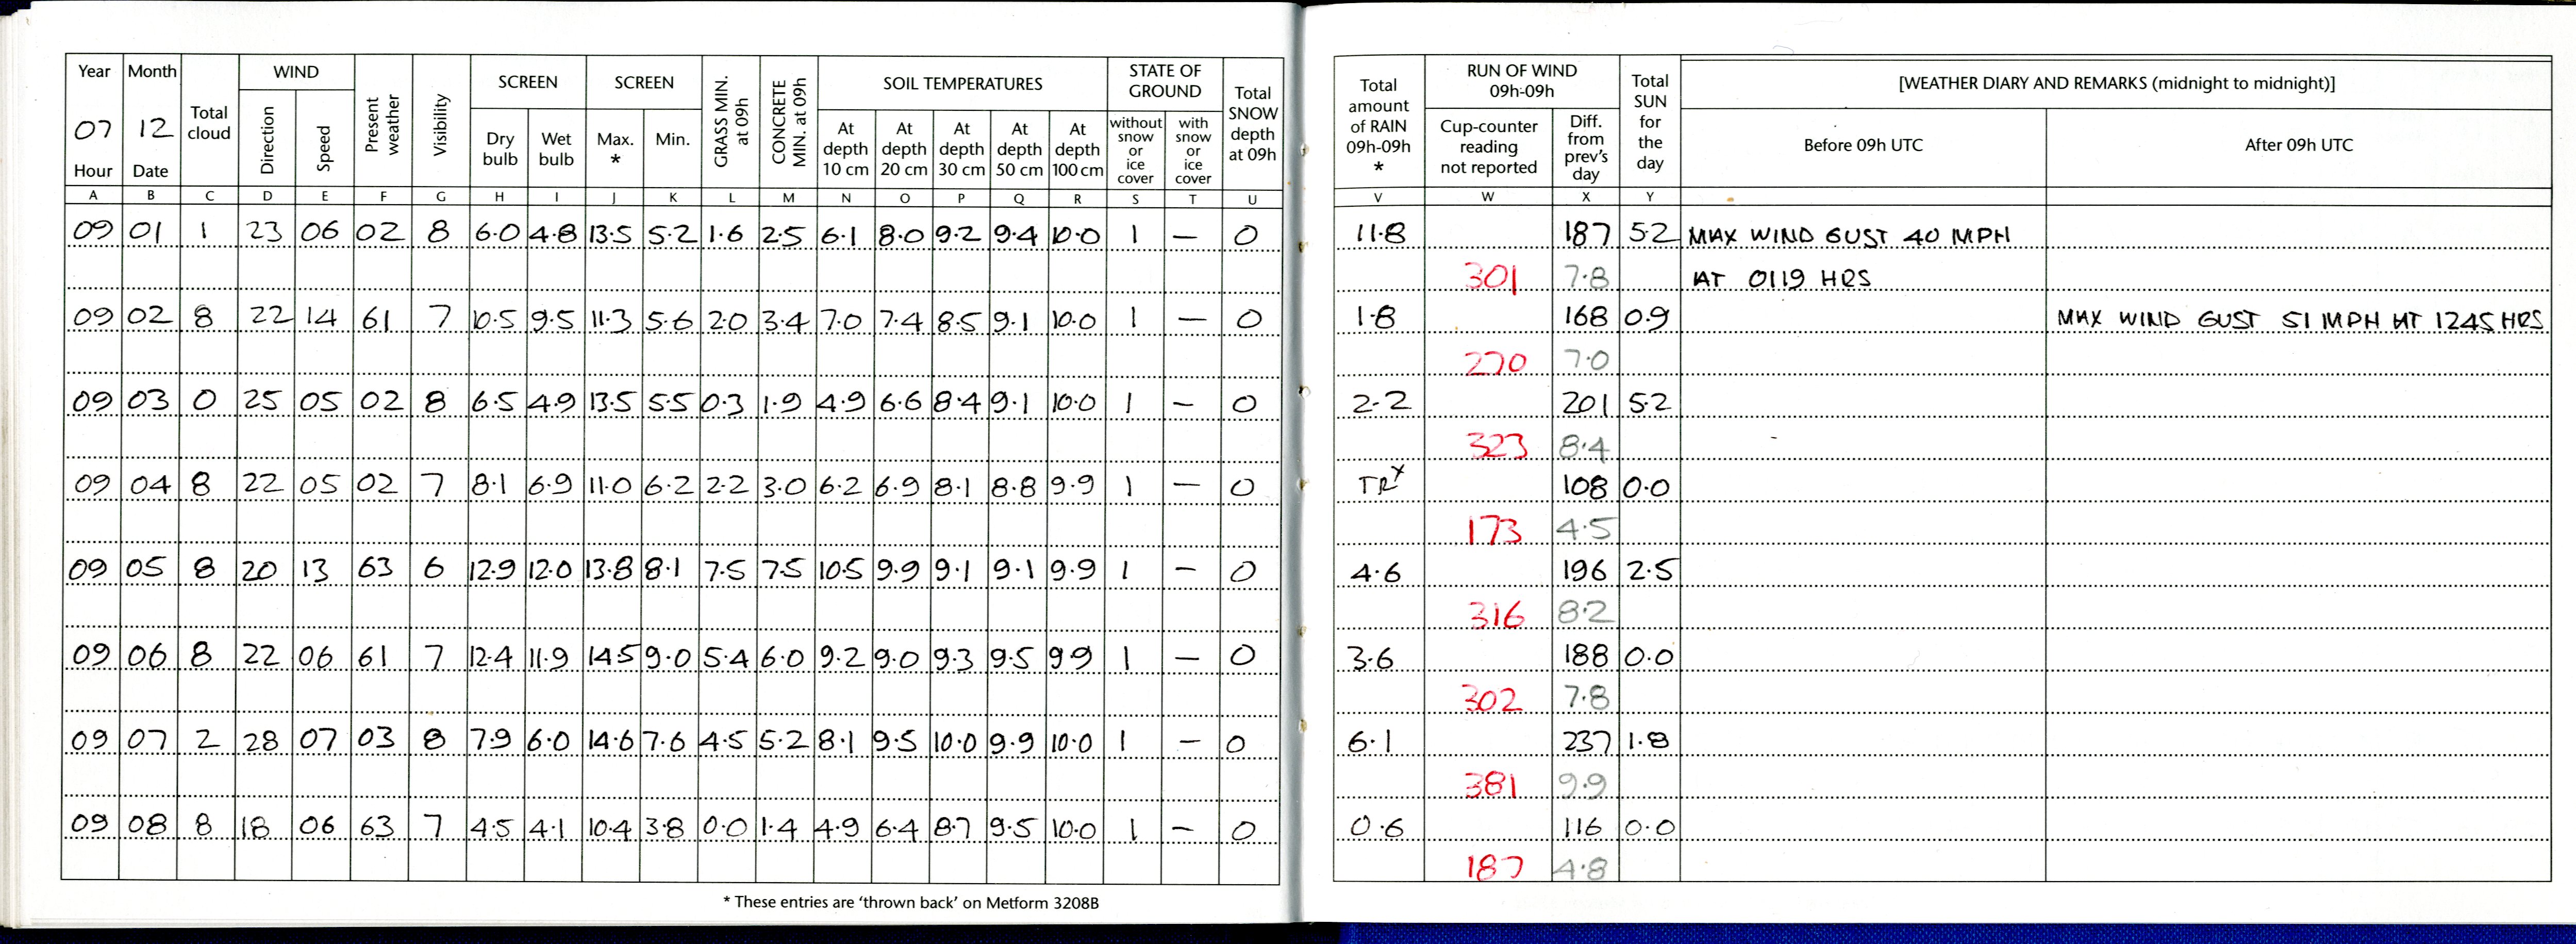 Year Month Total cloud WIND Present weather Visibility SCREEN SCREEN GRASS MIN. at 09h CONCRETE MIN. at 09h SOIL TEMPERATURES STATE OF GROUND Total SNOW depth at 09h
07 12 Direction Speed Dry bulb Wet bulb Max. * Min. At depth 10 cm At depth 20 cm At depth 30 cm At depth 50 cm At depth 100 cm without snow or ice cover with snow or ice cover
Hour Date
A B C D E F G H I J K L M N O P Q R S T U
09 01 1 23 06 02 8 6.0 4.8 13.5 5.2 1.6 2.5 6.1 8.0 9.2 9.4 10.0 1 — 0
09 02 8 22 14 61 7 10.5 9.5 11.3 5.6 2.0 3.4 7.0 7.4 8.5 9.1 10.0 1 — 0
09 03 0 25 05 02 8 6.5 4.9 13.5 5.5 0.3 1.9 4.9 6.6 8.4 9.1 10.0 1 — 0
09 04 8 22 05 02 7 8.1 6.9 11.0 6.2 2.2 3.0 6.2 6.9 8.1 8.8 9.9 1 — 0
09 05 8 20 13 63 6 12.9 12.0 13.8 8.1 7.5 7.5 10.5 9.9 9.1 9.1 9.9 1 — 0
09 06 8 22 06 61 7 12.4 11.9 14.5 9.0 5.4 6.0 9.2 9.0 9.3 9.5 9.9 1 — 0
09 07 2 28 07 03 8 7.9 6.0 14.6 7.6 4.5 5.2 8.1 9.5 10.0 9.9 10.0 1 — 0
09 08 8 18 06 63 7 4.5 4.1 10.4 3.8 0.0 1.4 4.9 6.4 8.7 9.5 10.0 1 — 0
* These entries are 'thrown back' on Metform 3208B
Total amount of RAIN 09h-09h * RUN OF WIND 09h-09h Total SUN for the day [WEATHER DIARY AND REMARKS (midnight to midnight)]
Cup-counter reading not reported Diff. from prev's day Before 09h UTC After 09h UTC
V W X Y
11.8 187 5.2 MAX WIND GUST 40 MPH
301 7.8 AT 0119 HRS
1.8 168 0.9 MAX WIND GUST 51 MPH AT 1245 HRS
270 7.0
2.2 201 5.2
323 8.4
TR x 108 0.0
173 4.5
4.6 196 2.5
316 8.2
3.6 188 0.0
302 7.8
6.1 237 1.8
381 9.9
0.6 116 0.0
187 4.8